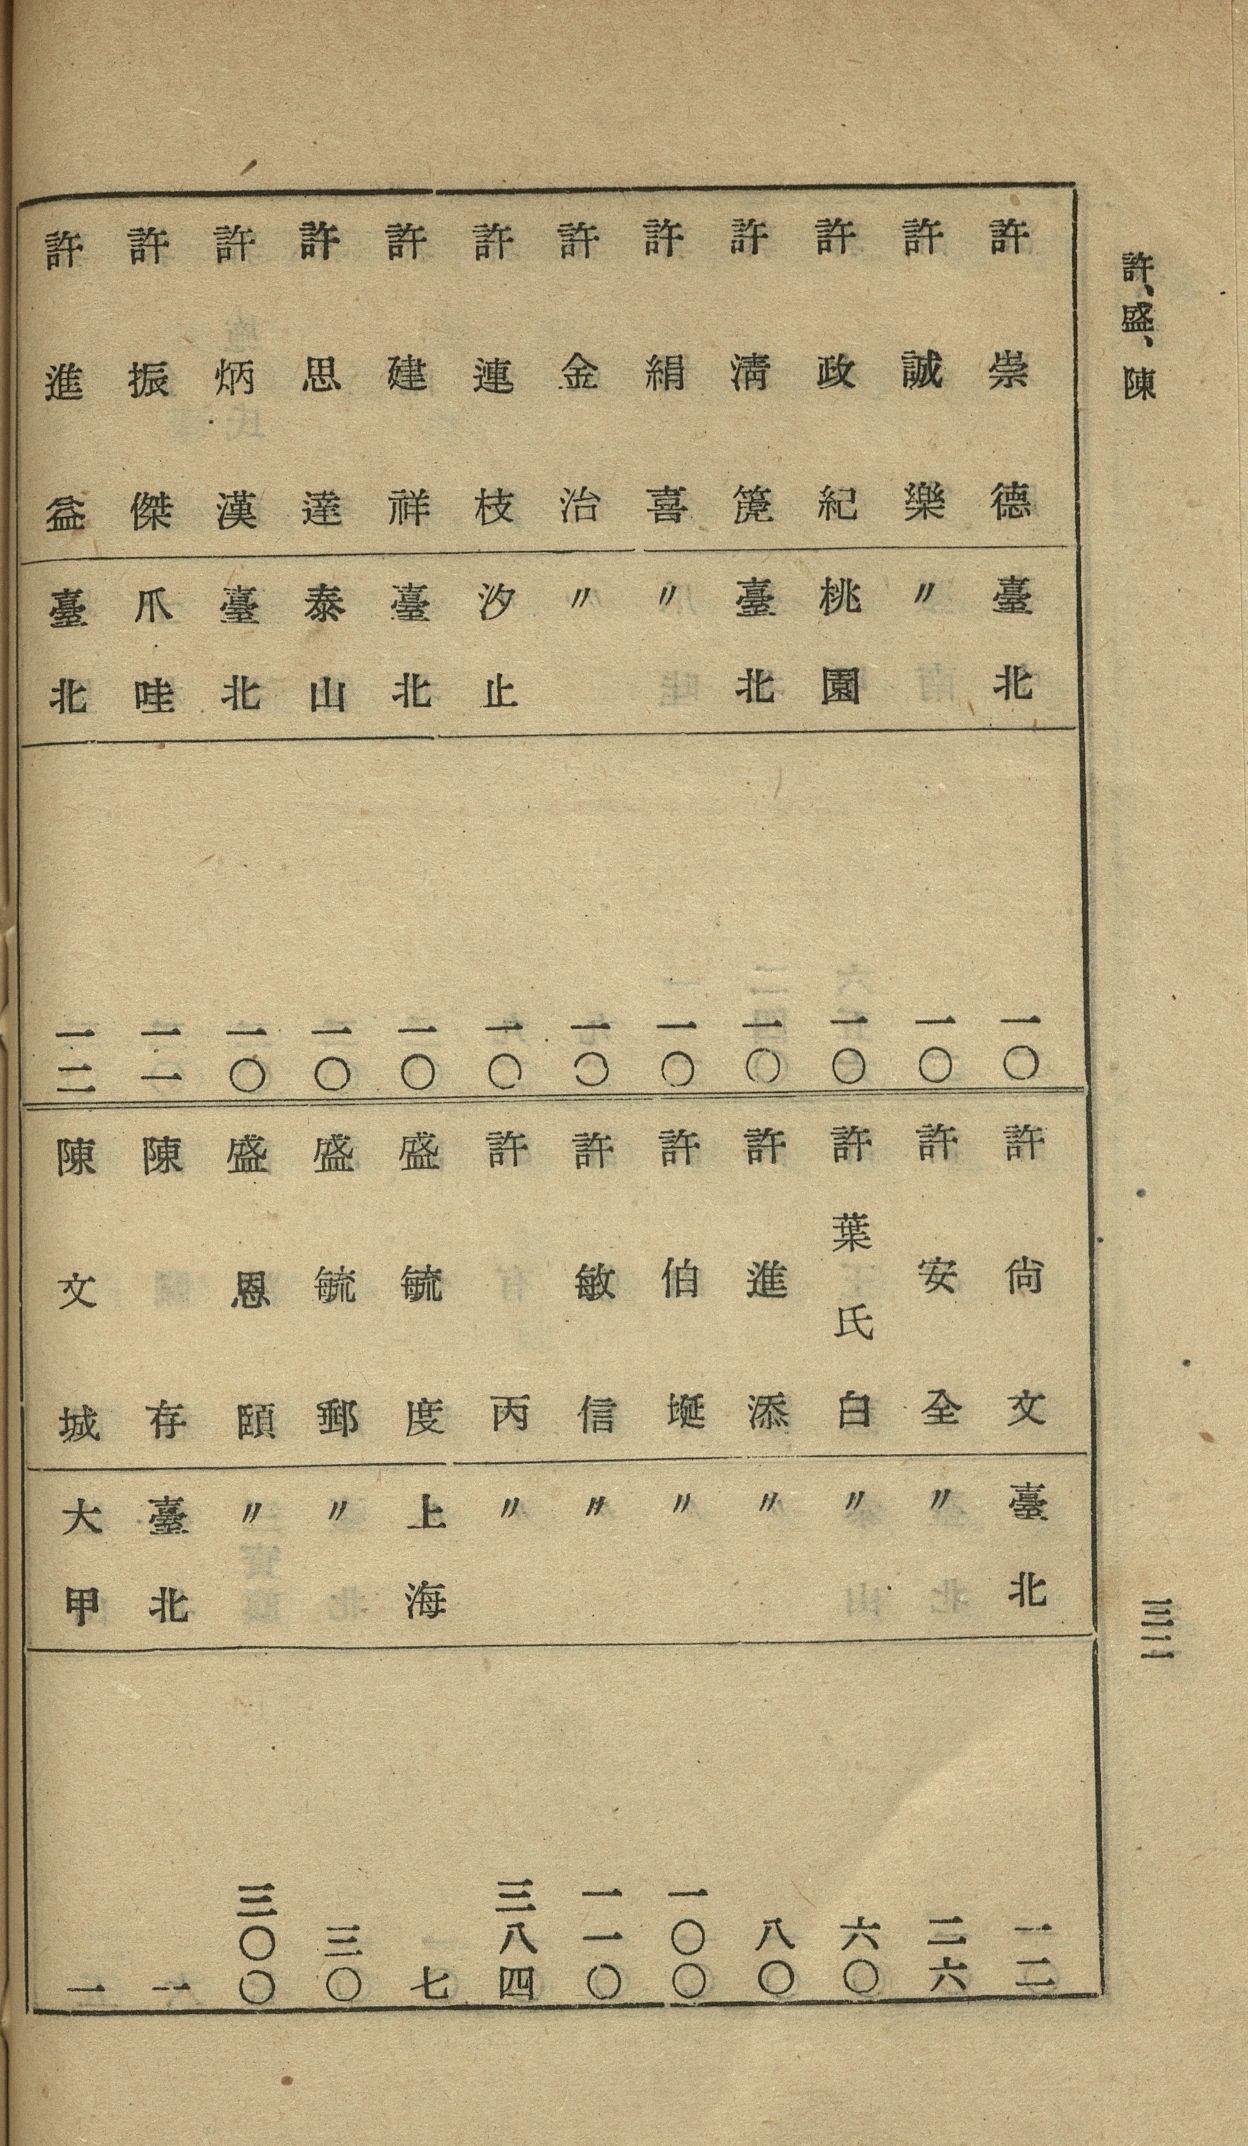 許、盛、陳
三二
許崇德 臺北 一〇
許誠樂 〃 一〇
許政紀 桃園 一〇
許淸箎 臺北 一〇
許絹喜 〃 一〇
許金治 〃 一〇
許連枝 汐止 一〇
許建祥 臺北 一〇
許思達 泰山 一〇
許炳漢 臺北 一〇
許振傑 爪哇 一一
許進益 臺北 一二
許尙文 臺北 一二
許安全 〃 二六
許葉氏白 〃 六〇
許進添 〃 八〇
許伯埏 〃 一〇〇
許敏信 〃 一一〇
許丙 〃 三八四
盛毓度 上海 七
盛毓郵 〃 三〇
盛恩頤 〃 三〇〇
陳存 臺北 一
陳文城 大甲 一